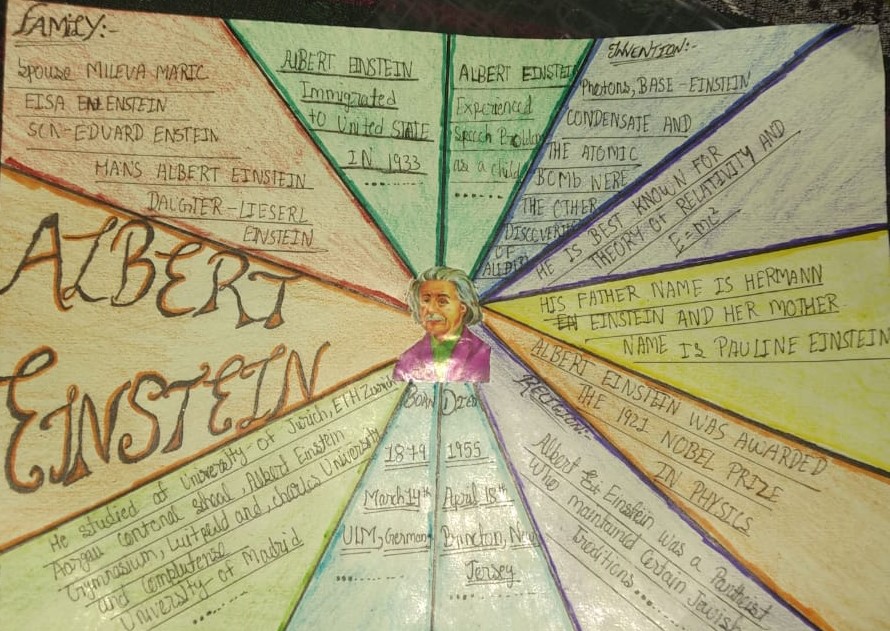 FAMILY:-
Spouse MILEVA MARIC
EISA ENLENSTEIN
SON-EDVARD ENSTEIN
HANS ALBERT EINSTEIN
DAUGTER-LIESERL
EINSTEIN
ALBERT EINSTEIN
Immigrated
to United STATE
IN 1933
ALBERT EINSTEIN
Experienced
Speech Problem
as a child
INVENTION:-
Photons, BASE-EINSTEIN
CONDENSATE AND
THE ATOMIC
BOMB WERE
THE OTHER
DISCOVERIES
OF
HE IS BEST KNOWN FOR
THEORY OF RELATIVITY AND
E=mc²
HIS FATHER NAME IS HERMANN
EINSTEIN AND HER MOTHER
NAME IS PAULINE EINSTEIN
ALBERT EINSTEIN WAS AWARDED
THE 1921 NOBEL PRIZE
IN PHYSICS
Albert Einstein was a Pantheist
Who maintained Certain Jewish
traditions....
DIED
1955
April 18th
Princton, New
Jersey
BORN
1879
March 14th
ULM, Germany
He studied at University of Zurich, ETH Zurich
Aargau contonal school, Albert Einstein
Gymnasium, Luitpold and, University
and complutense
University of Madrid
ALBERT
EINSTEIN